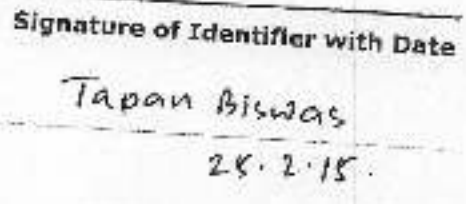 Signature of Identifier with Date
Tapan Biswas
25.2.15.